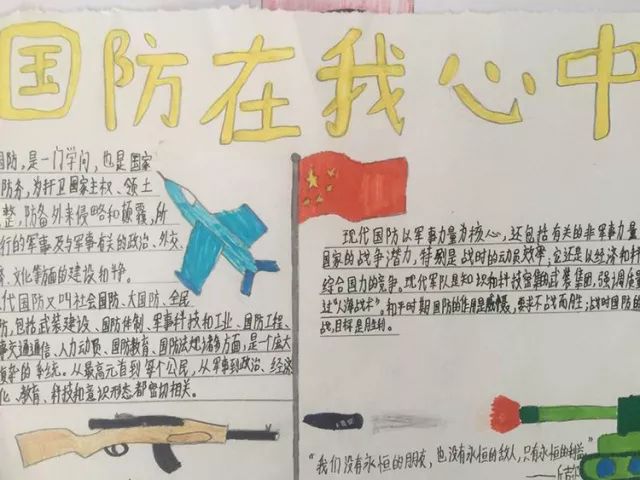 国防在我心中
国防,是一门学问,也是国家
防务,为捍卫国家主权、领土
整,防备外来侵略和颠覆,所
行的军事及与军事有关的政治、外交、
文化等方面的建设和斗争。
代国防又叫社会国防、大国防、全民
防,包括武装建设、国防体制、军事科技和工业、国防工程、
事交通通信、人力动员、国防教育、国防法规诸多方面,是一个庞大
的系统。从最高元首到每个公民,从军事到政治、经济
化、教育、科技和意识形态都密切相关。
现代国防以军事力量为核心,还包括有关的非军事力量
国家的战争潜力,特别是战时的动员效率,它还是以经济和科
综合国力的竞争。现代军队是知识和科技密集的武装集团,强调质量
过“人海战术”。和平时期国防的作用是威慑,要求不战而屈;战时国防的
战,目标是胜利。
“我们没有永恒的朋友,也没有永恒的敌人,只有永恒的利益”
——丘吉尔